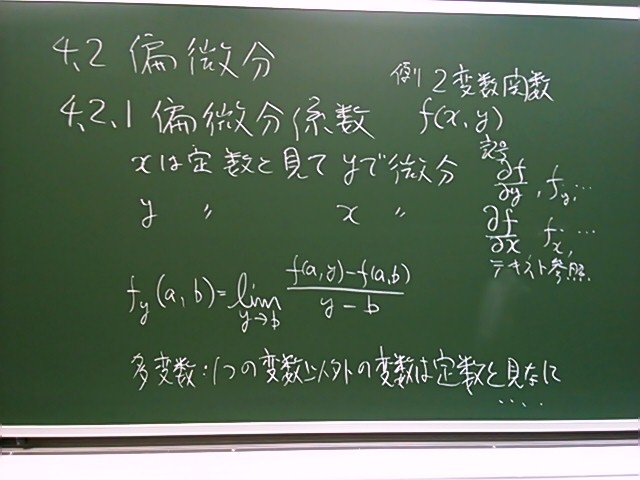 4.2 偏微分
4.2.1 偏微分係数
xは定数と見て yで微分
y 〃 x 〃
例 2変数関数
f(x,y)
記号
∂f/∂y , f_y, …
∂f/∂x f_x, …
テキスト参照
f_y(a,b)=lim_{y→b} (f(a,y)−f(a,b))/(y−b)
多変数:1つの変数以外の変数は定数と見なし
....